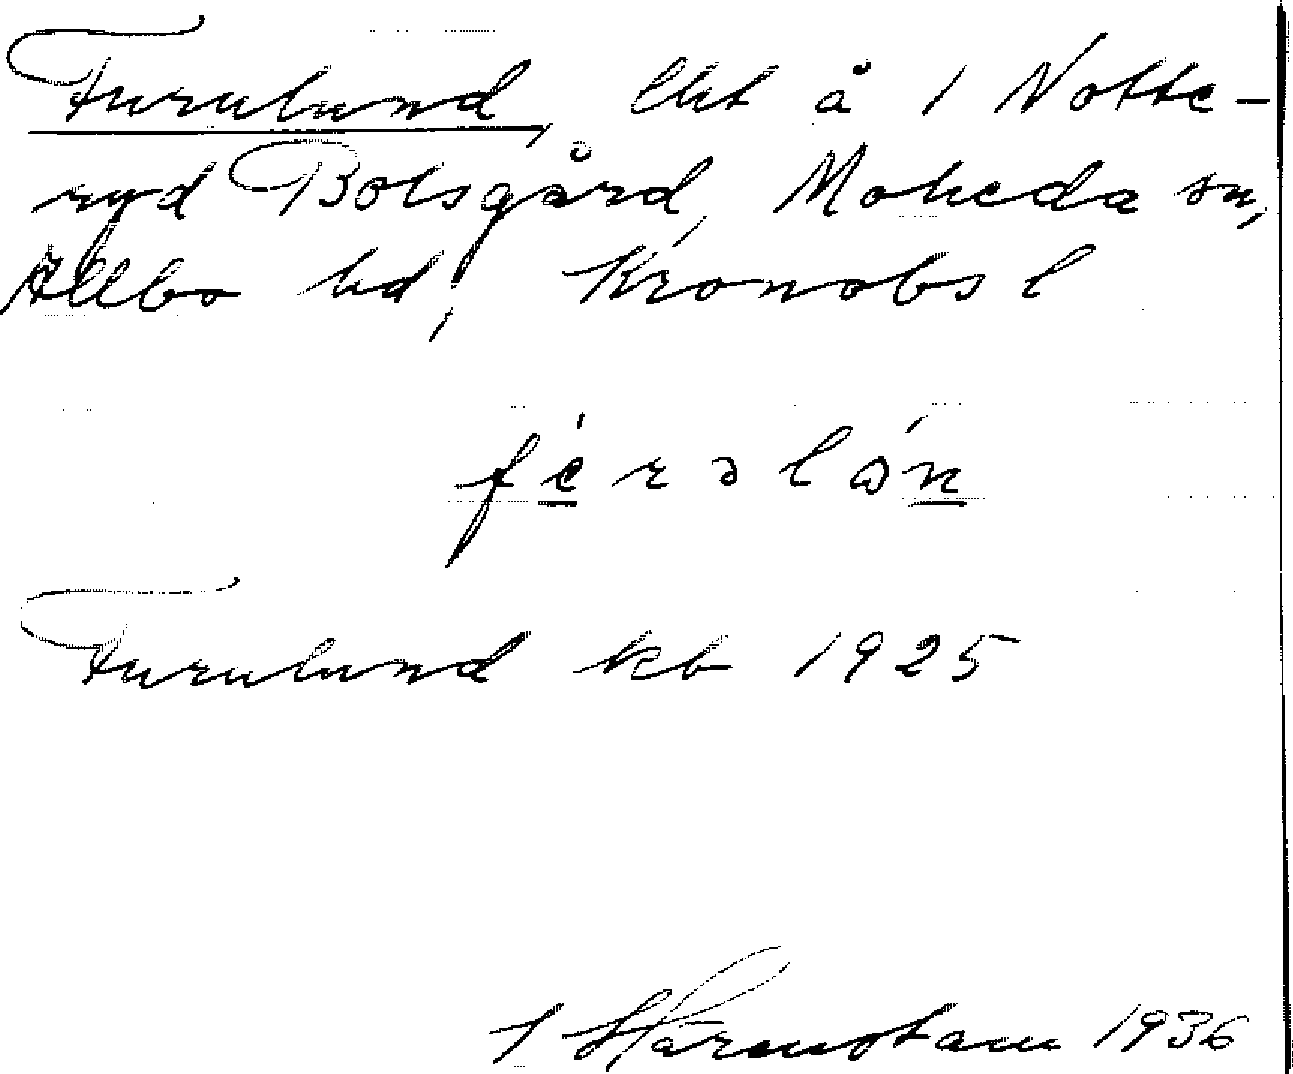 Furulund, lht å 1 Notte-
ryd Bolsgård, Moheda sn,
Allbo hd, Kronobs l
Furulund kb 1925
1936